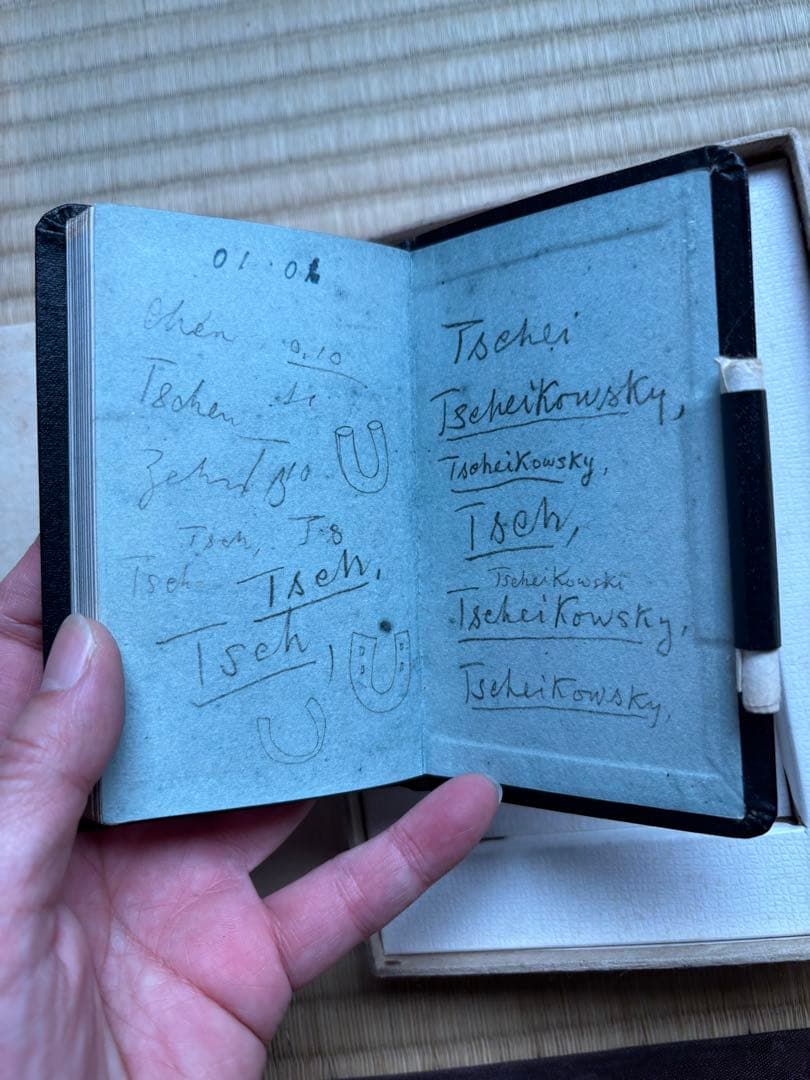 01.01
chen 0.10
Tschen
Tsch, Ts
Tsch Tsch,
Tsch,
Tschei
Tscheikowsky,
Tscheikowsky,
Tsch,
Tscheikowski
Tscheikowsky,
Tscheikowsky,